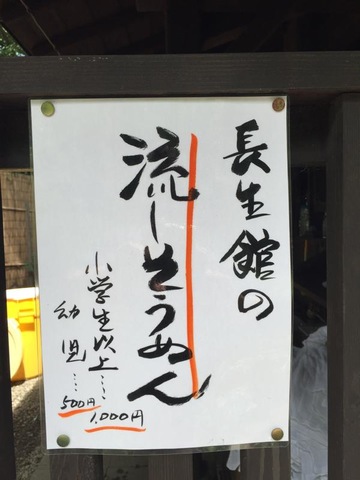 長生館の
流しそうめん
小学生以上…1,000円
幼児…500円